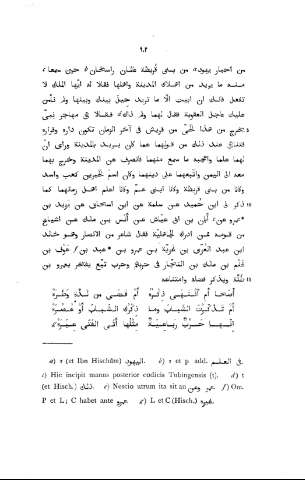 ٩٠٢
من احبار يهود من بنى قريظة عالمان راسخان حين سمعا
منه ما يريد من اهلاك المدينة واهلها فقالا له ايّها الملك لا
تفعل فانك ان ابيت الّا ما تريد حيل بينك وبينها ولم نأمن
عليك عاجل العقوبة فقال لهما ولم ذاك فقالا هى مهاجر نبىّ
يخرج من هذا الحىّ من قريش فى آخر الزمان تكون داره وقراره
فتناهى عند ذلك من قولهما عما كان يريد بالمدينة ورأى ان
لهما علما واعجبه ما سمع منهما فانصرف عن المدينة وخرج بهما
معه الى اليمن واتّبعهما على دينهما وكان اسم الحبرين كعب واسد
وكانا من بنى قريظة وكانا ابنى عمّ وكانا اعلم اهل زمانهما كما
ذكر لى ابن حميد عن سلمة عن ابن اسحاق عن يزيد بن
عمرو عن أبان بن ابى عيّاش عن أنس بن مالك عن اشياخ
من قومه ممن ادرك الجاهليّة فقال شاعر من الانصار وهو خالد
ابن عبد العزّى بن غزيّة بن عمرو بن عبد بن عوف بن
غنم بن مالك بن النجّار فى حربهم وحرب تبّع يفتخر بعمرو بن
طلّة ويذكر فضله وامتناعه
أصحا أم انتهى ذكره أم قضى من لذّة وطره
أم تذكّرت الشباب وما ذكرك الشباب أو عصره
إنها حرب رباعية مثلها آتى الفتى عبره
a) t (et Ibn Hischâm) اليهود. b) t et p. add. فى العلم.
c) Hic incipit manus posterior codicis Tubingensis (t). d) t
(et Hisch.) ذلك. e) Nescio utrum ita sit an عمر وعن. f) Om.
P et L; C habet ante عمرو. g) L et C (Hisch.) غيره.